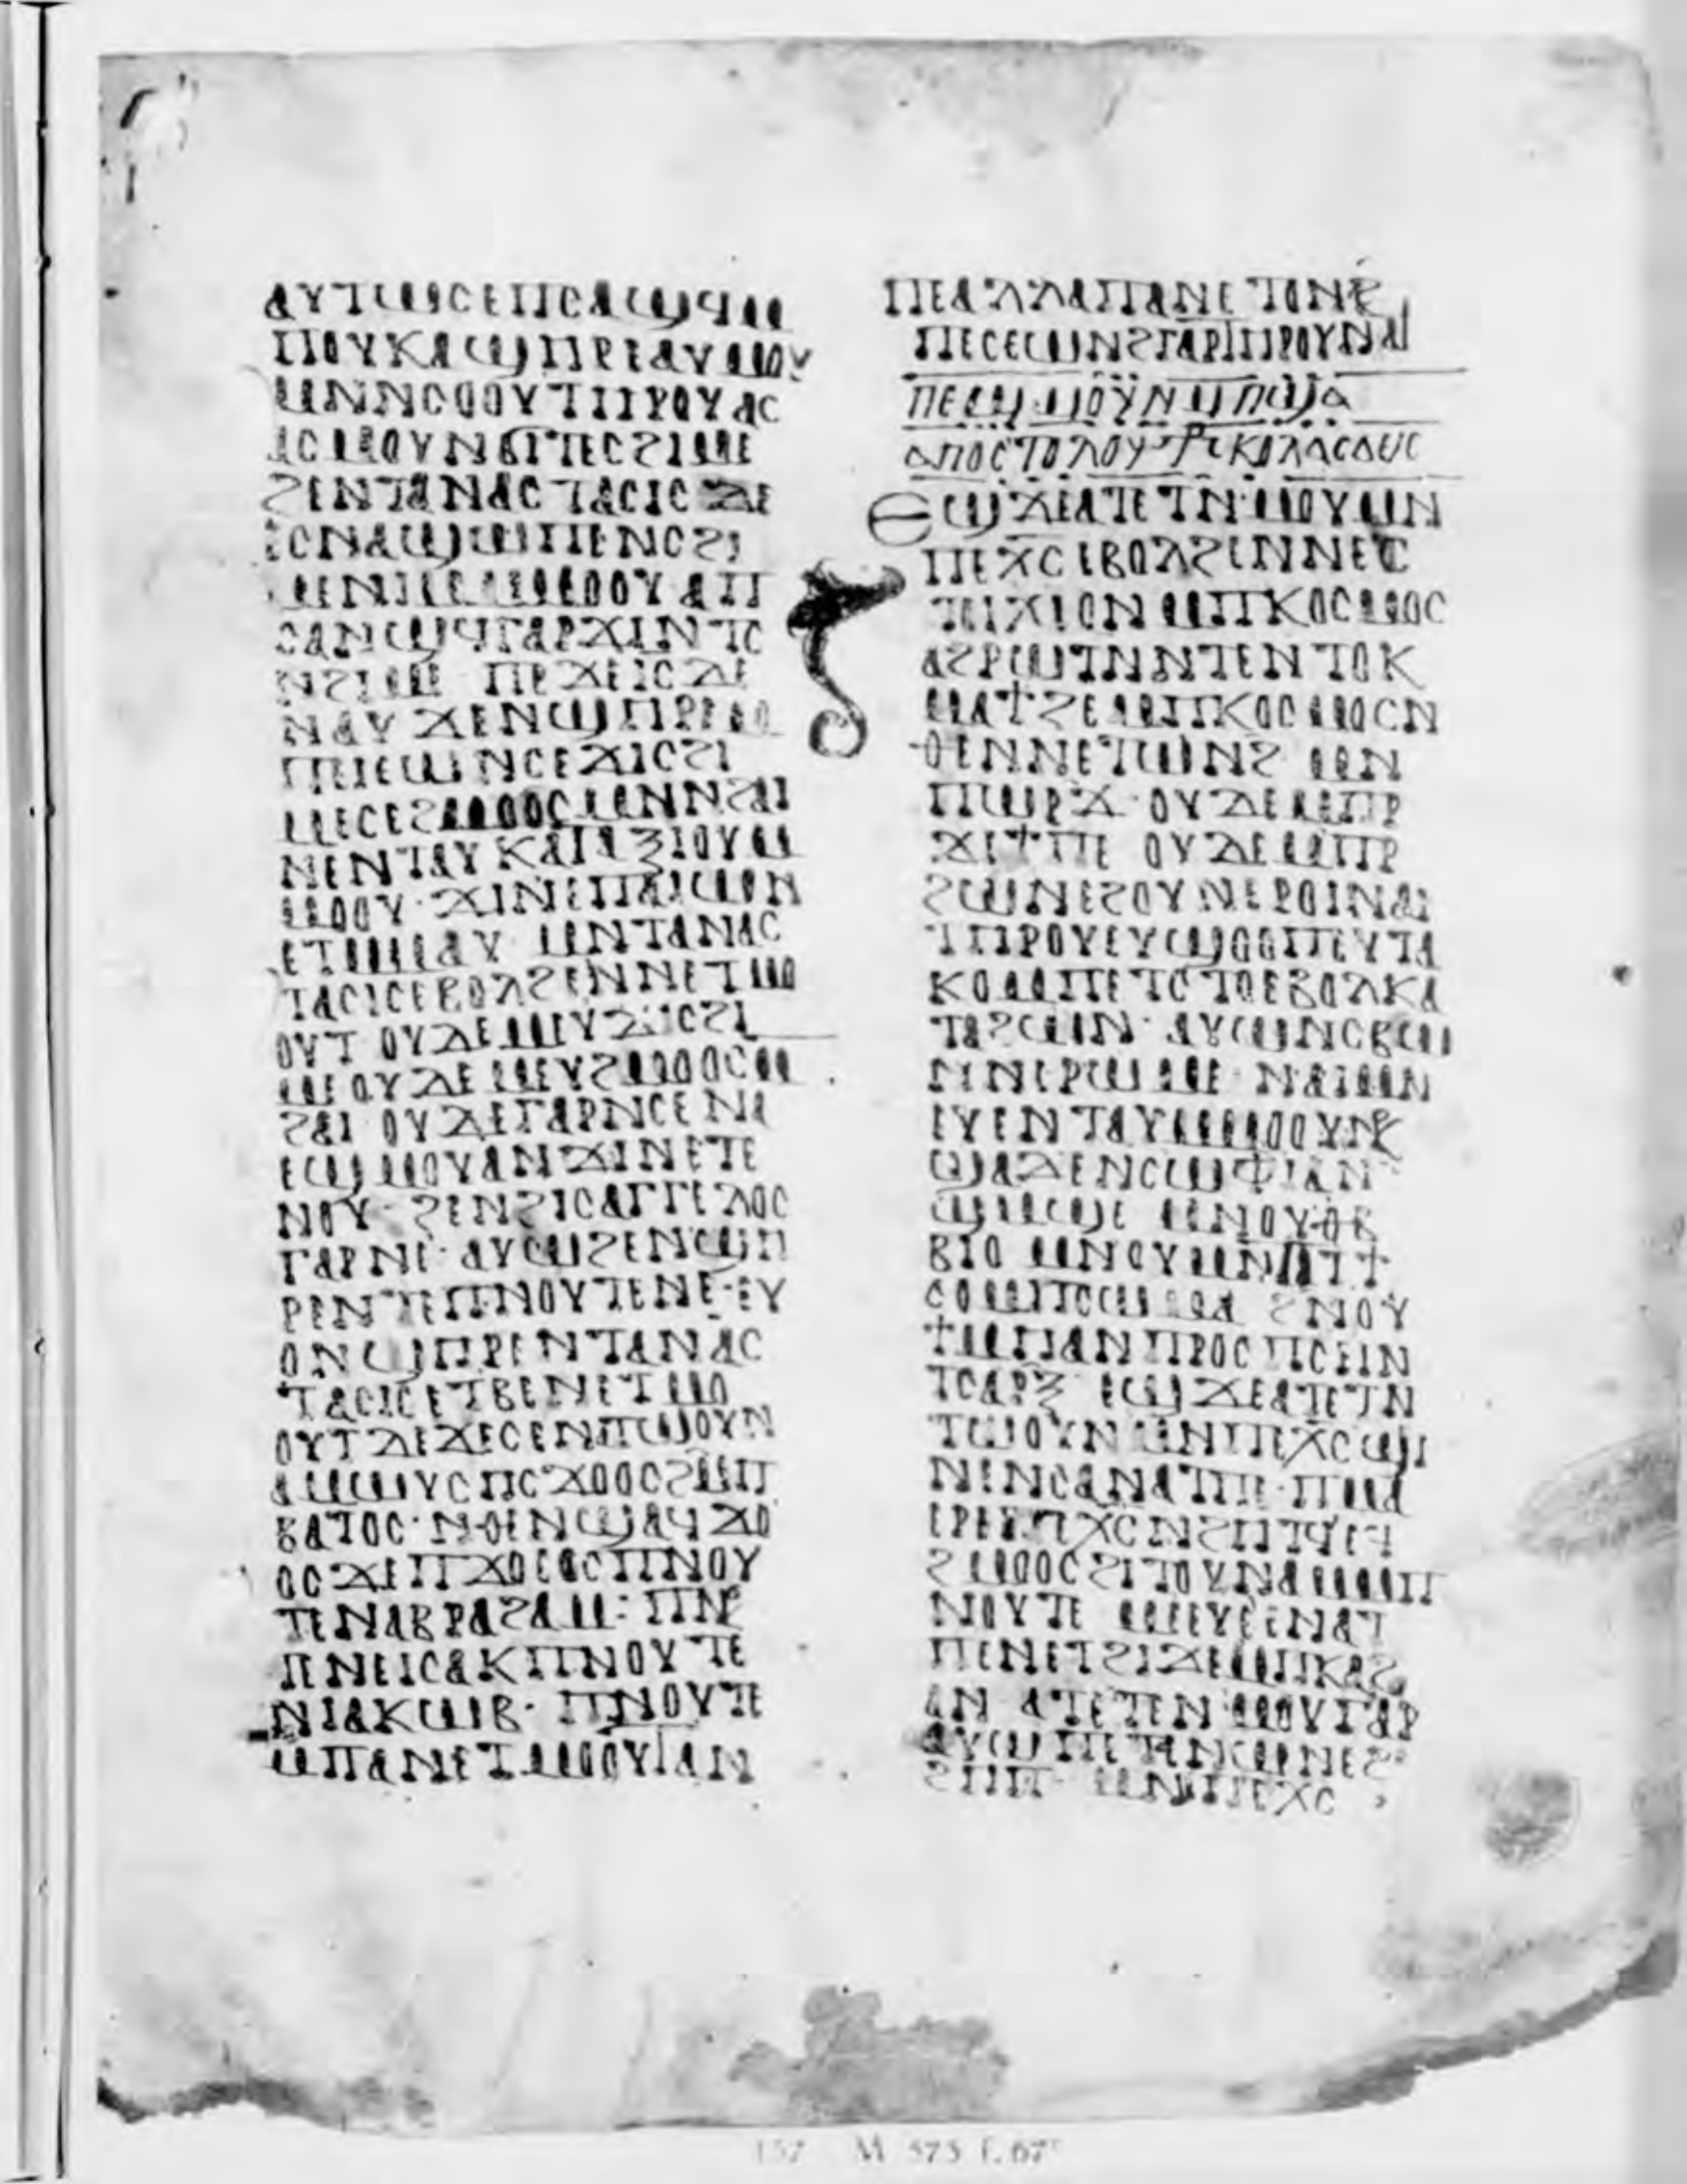 ⲁⲩⲧⲱⲥⲉⲡⲥⲁϣϥⲙ
ⲡⲟⲩⲕⲁϣⲏⲣⲉⲁⲩⲙⲟⲩ
ⲙⲛⲛⲥⲟⲟⲩⲧⲏⲣⲟⲩⲁⲥ
ⲁⲥⲙⲟⲩⲛϭⲓⲧⲉⲥϩⲓⲙⲉ
ϩⲉⲛⲧⲁⲛⲁⲥⲧⲁⲥⲓⲥ ⲇⲉ
ⲉⲥⲛⲁϣⲱⲡⲉⲛⲥϩⲓ
ⲙⲉⲛⲓⲉⲙⲙⲟⲟⲩ ⲁⲡ
ⲥⲁⲛϣϥⲅⲁⲣϫⲓⲛⲧⲥ
ⲛϩⲓⲙⲉ ⲡⲉϫⲉⲓⲥ ⲇⲉ
ⲛⲁⲩ ϫⲉⲛϣⲏⲣⲉⲙ
ⲡⲉⲓⲉⲱⲛⲥⲉϫⲓⲥϩⲓ
ⲙⲉⲥⲉϩⲙⲟⲟⲥⲙⲛⲛϩⲁⲓ
ⲛⲉⲛⲧⲁⲩⲕⲁⲧⲁⲝⲓⲟⲩⲙ
ⲙⲟⲟⲩ· ϫⲓⲛⲉⲡⲁⲓⲱⲛ
ⲉⲧⲙⲙⲁⲩ ⲙⲛⲧⲁⲛⲁⲥ
ⲧⲁⲥⲓⲥⲉⲃⲟⲗϩⲉⲛⲛⲉⲧⲙⲟ
ⲟⲩⲧ ⲟⲩⲇⲉⲙⲉⲩϫⲓⲥϩⲓ
ⲙⲉⲟⲩⲇⲉ ⲙⲉⲩϩⲙⲟⲟⲥⲙ
ϩⲁⲓ ⲟⲩⲇⲉⲅⲁⲣⲛⲥⲉⲛⲁ
ⲉϣⲙⲟⲩⲁⲛϫⲓⲛⲉⲧⲉ
ⲛⲟⲩ· ϩⲉⲛϩⲓⲥⲁⲅⲅⲉⲗⲟⲥ
ⲅⲁⲣⲛⲉ· ⲁⲩⲱϩⲉⲛϣⲏ
ⲣⲉⲛⲧⲉⲡⲛⲟⲩⲧⲉⲛⲉ· ⲉⲩ
ⲟⲛϣⲏⲣⲉⲛⲧⲁⲛⲁⲥ
ⲧⲁⲥⲓⲥⲉⲧⲃⲉⲛⲉⲧⲙⲟ
ⲟⲩⲧ ⲇⲉϫⲉⲥⲉⲛⲡϣⲟⲩⲛ
ⲁⲙⲱⲩⲥⲏⲥϫⲟⲟⲥϩⲙⲡ
ⲃⲁⲧⲟⲥ· ⲛⲑⲉⲛϣⲁϥϫⲟ
ⲟⲥϫⲉⲡϫⲟⲉⲓⲥⲡⲛⲟⲩ
ⲧⲉⲛⲁⲃⲣⲁϩⲁⲙ: ⲡⲛⲟⲩ
ⲧⲉⲛⲉⲓⲥⲁⲕⲡⲛⲟⲩⲧⲉ
ⲛⲓⲁⲕⲱⲃ· ⲡⲛⲟⲩⲧⲉ
ⲙⲡⲁⲛⲉⲧⲙⲟⲟⲩⲧⲁⲛ
ⲡⲉⲁⲗⲗⲁⲡⲁⲛⲉⲧⲟⲛϩ
ⲡⲉⲥⲉⲱⲛϩⲅⲁⲣⲧⲏⲣⲟⲩⲛⲁϥ
ⲡⲉϣⲙⲟⲩⲛⲙⲡϣⲁ
ⲁⲡⲟⲥⲧⲟⲗⲟⲩ ⲡⲣ ⲕⲟⲗⲁⲥⲁⲉⲓⲥ
ⲉϣϫⲉⲁⲧⲉⲧⲛ·ⲙⲟⲩⲙⲛ
ⲡⲉⲭⲥ ⲉⲃⲟⲗϩⲉⲛⲛⲉⲥ
ⲧⲟⲓⲭⲓⲟⲛ ⲙⲡⲕⲟⲥⲙⲟⲥ
ⲁϩⲣⲱⲧⲛⲛⲧⲉⲛ ⲧⲟⲕ
ⲙⲁϯϩⲉⲙⲡⲕⲟⲥⲙⲟⲥⲛ
ⲑⲉⲛⲛⲉⲧⲱⲛϩ ⲙⲛ
ⲡⲱⲣϫ· ⲟⲩⲇⲉⲙⲡⲣ
ϫⲓϯⲡⲉ ⲟⲩⲇⲉⲙⲡⲣ
ϩⲱⲛⲉϩⲟⲩⲛⲉⲣⲟⲓⲛⲁⲓ
ⲧⲏⲣⲟⲩⲉⲩϣⲟⲟⲡⲉⲩⲧⲁ
ⲕⲟⲙⲡⲉⲧⲥⲧⲟⲉⲃⲟⲗⲕⲁ
ⲧⲁϩⲱⲛ· ⲁⲩⲱⲛⲥⲃⲱ
ⲛⲛⲉⲣⲱⲙⲉ· ⲛⲁⲓⲙⲛ
ⲉⲩⲉⲛⲧⲁⲩⲙⲙⲟⲟⲩⲛ
ϣⲁϫⲉⲛⲥⲱⲫⲓⲁⲛ
ϣⲙϣⲉ ⲙⲛⲟⲩⲑⲃ
ⲃⲓⲟ ⲙⲛⲟⲩⲙⲛⲧⲁⲧϯ
ⲥⲟⲙⲡⲥⲱⲙⲁ ϩⲛⲟⲩ
ϯⲙⲏⲁⲛⲡⲣⲟⲥⲡⲥⲉⲓⲛ
ⲧⲥⲁⲣⲝ ⲉϣϫⲉⲁⲧⲉⲧⲛ
ⲧⲱⲟⲩⲛ ⲙⲛⲡⲉⲭⲥϣⲓ
ⲛⲉⲛⲥⲁⲛⲁⲧⲡⲉ· ⲡⲙⲁ
ⲉⲣⲉⲡⲉⲭⲥⲛϩⲏⲧϥⲉϥ
ϩⲙⲟⲟⲥϩⲓⲧⲟⲩⲛⲁⲙⲙⲡ
ⲛⲟⲩⲧⲉ ⲙⲉⲩⲉⲉⲛⲁⲧ
ⲡⲉⲛⲉⲧϩⲓϫⲉⲙⲡⲕⲁϩ
ⲁⲛ ⲁⲧⲉⲧⲉⲛ·ⲙⲟⲩⲅⲁⲣ
ⲁⲩⲱ ⲡⲉⲧⲛⲱⲛⲉϩ
ϩⲏⲡ· ⲙⲛⲡⲉⲭⲥ
M 573 f. 67